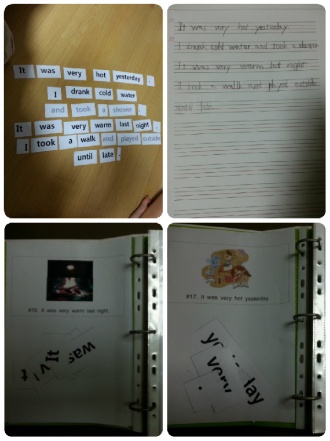 It was very hot yesterday .
I drank cold water
and took a shower .
It was very warm last night .
I took a walk and played outside
until late .
It was very hot yesterday
I drank cold water and took a shower
It was very warm last night
I took a walk and played outside
until late
#16. It was very warm last night.
It was
#17. It was very hot yesterday
very day